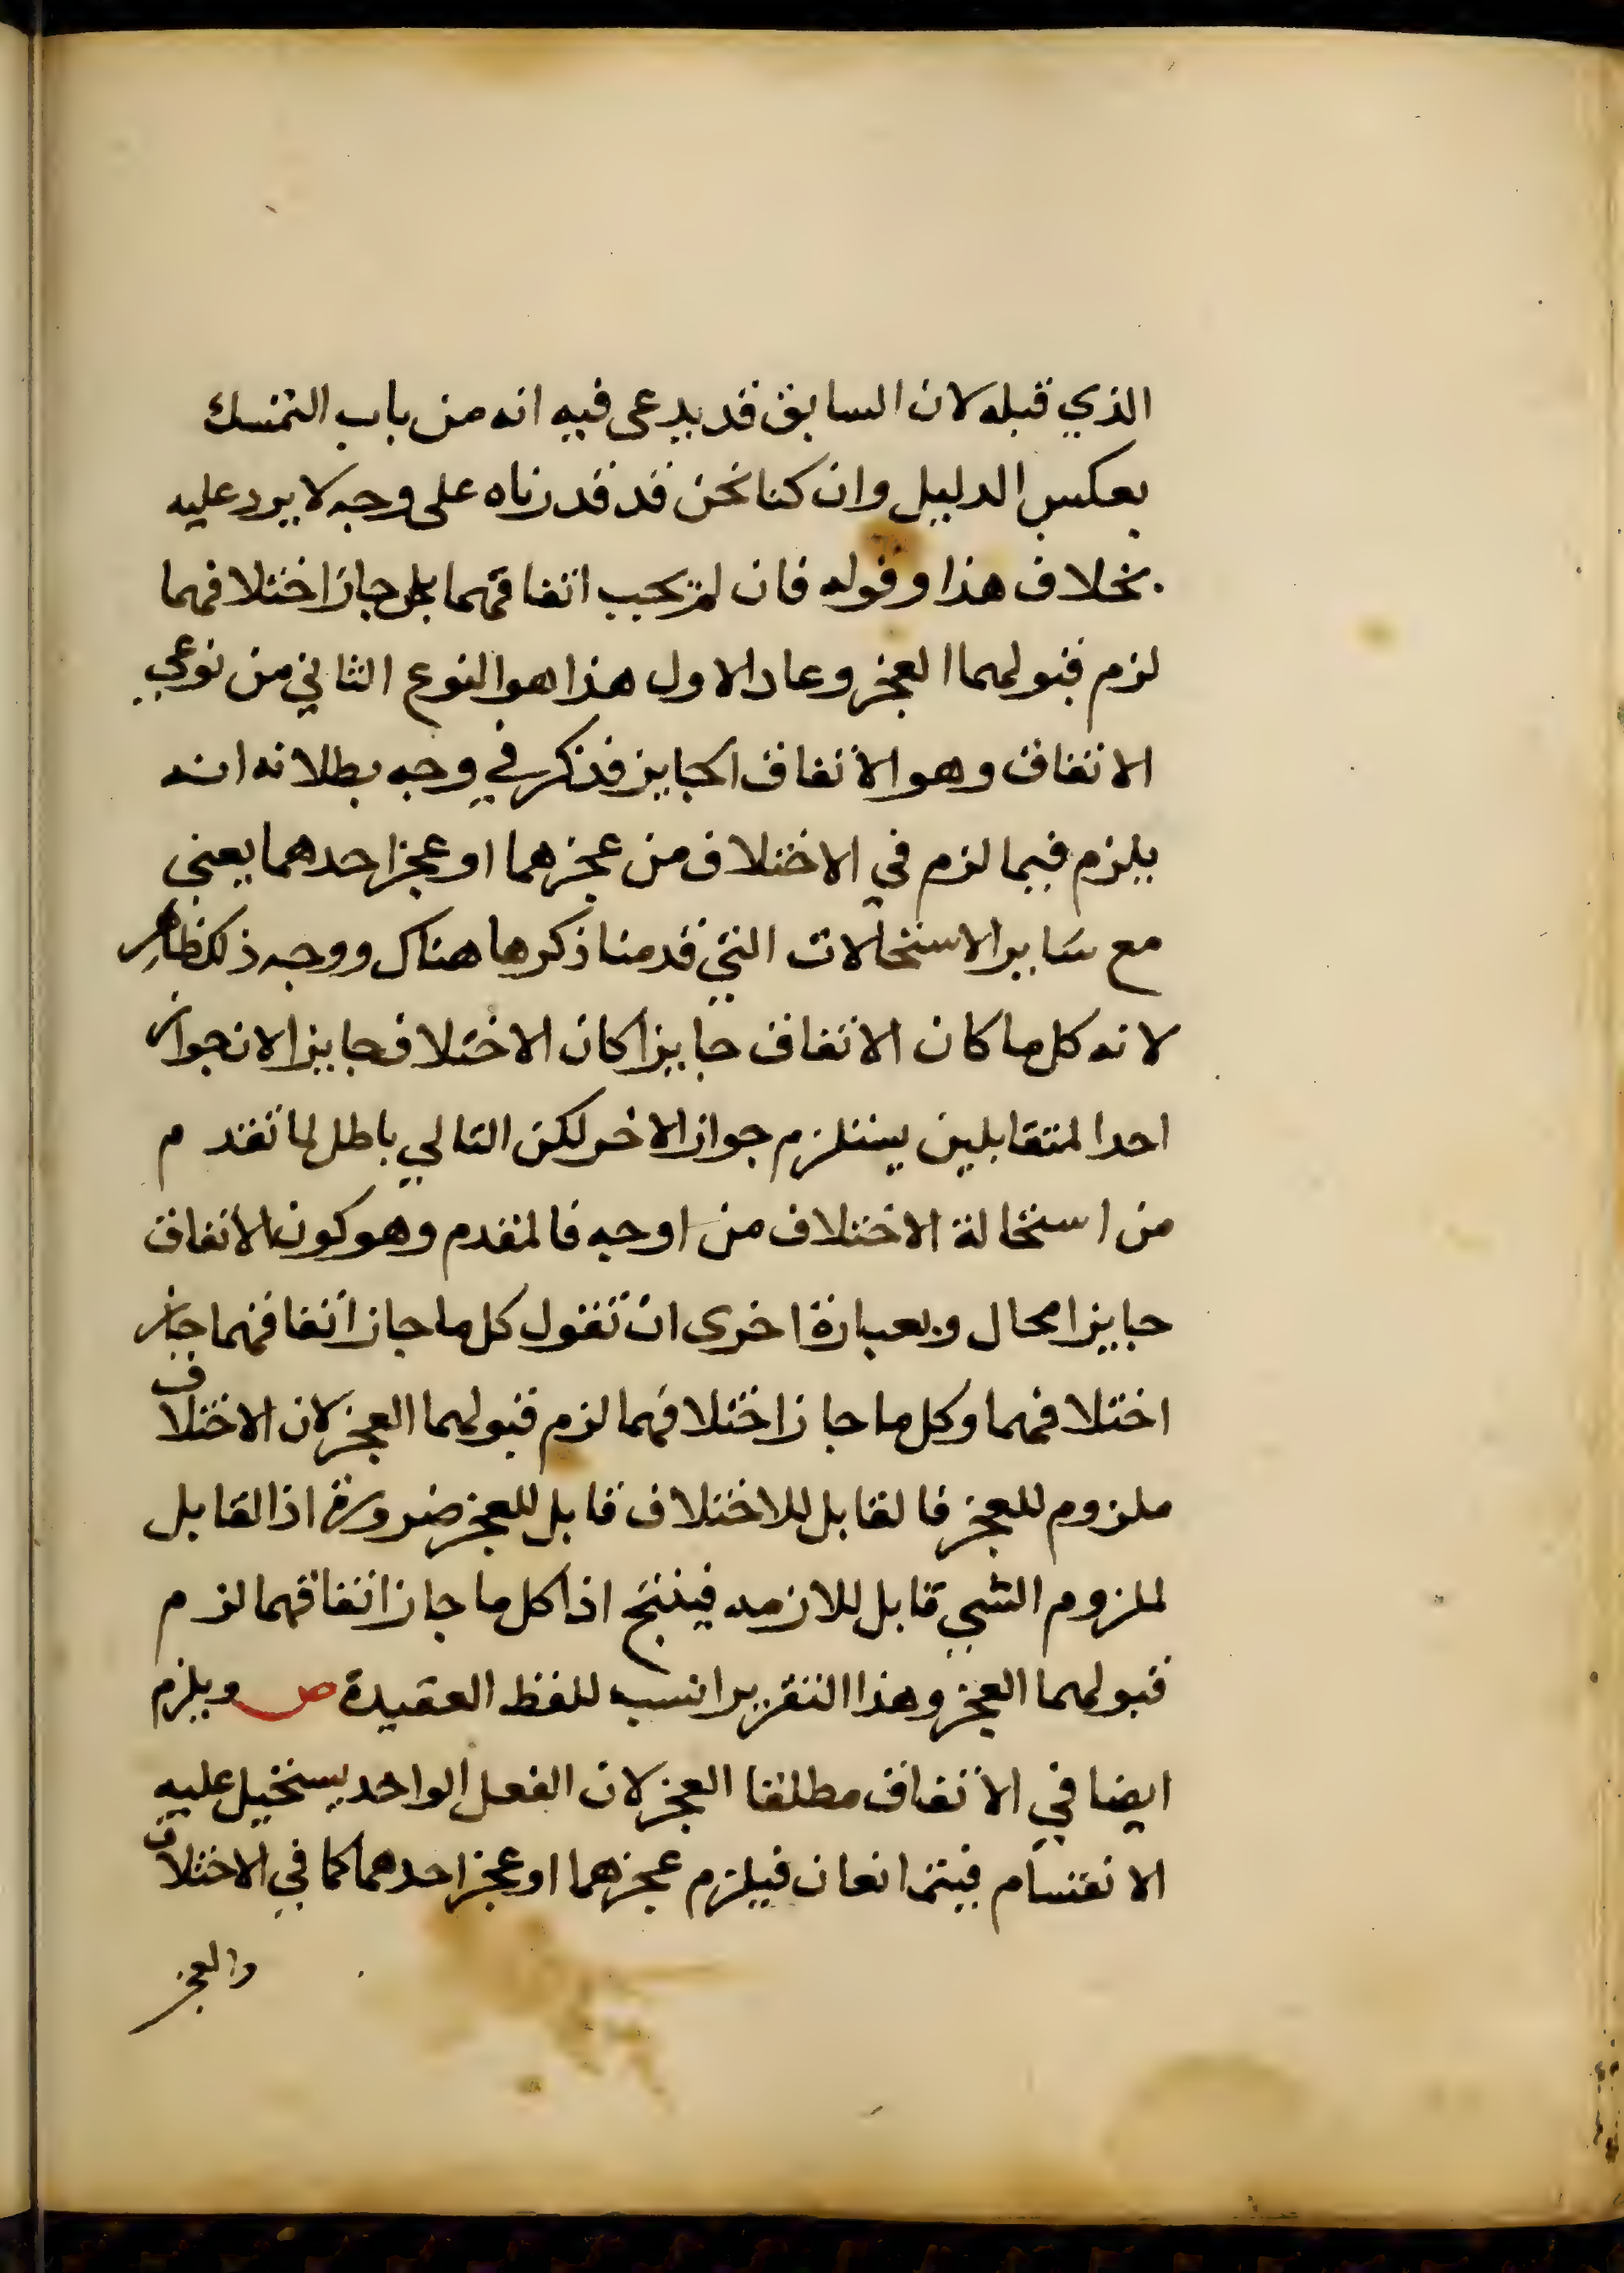 الذي قبله لان السابق قد يدعى فيه انه من باب التمسك
بعكس الدليل وان كنا نحن قد قدرناه على وجه لا يرد عليه
بخلاف هذا وقوله فان لم يجب اتفاقهما بل جاز اختلافهما
لزم قبولهما العجز وعاد الاول هذا هو النوع الثاني من نوعي
الاتفاق وهو الاتفاق الجايز فذكر في وجه بطلانه انه
يلزم فيما لزم في الاختلاف من عجزهما او عجز احدهما يعني
مع ساير الاستحالات التي قدمنا ذكرها هناك ووجه ذلك ظاهر
لانه كل ما كان الاتفاق جايزا كان الاختلاف جايزا لان جواز
احد المتقابلين يستلزم جواز الاخر لكن التالي باطل لما تقدم
من استحالة الاختلاف من اوجه فالمقدم وهو كون الاتفاق
جايزا محال وبعبارة اخرى ان تقول كل ما جاز اتفاقهما جاز
اختلافهما وكل ما جاز اختلافهما لزم قبولهما العجز لان الاختلاف
ملزوم للعجز فالقابل للاختلاف قابل للعجز ضرورة اذ القابل
لملزوم الشي قابل للازمه فينتج اذا كل ما جاز اتفاقهما لزم
قبولهما العجز وهذا التقرير انسب للفظ العقيدة ص ويلزم
ايضا في الاتفاق مطلقا العجز لان الفعل الواحد يستحيل عليه
الانقسام فيتمانعان فيلزم عجزهما او عجز احدهما كما في الاختلاف
والعجز